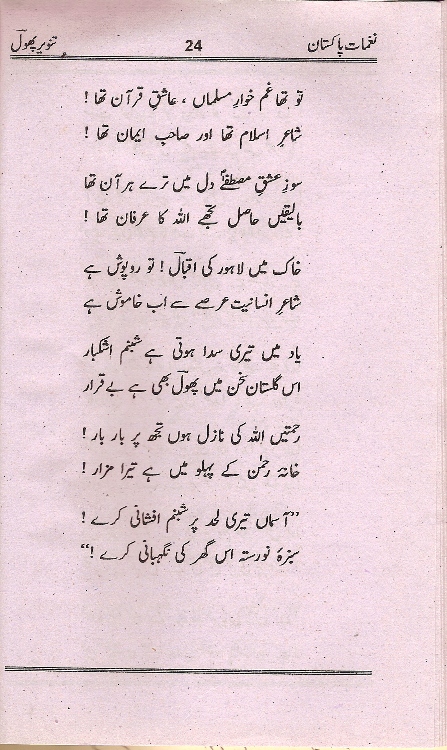 نغمات پاکستان 24 تنویر پھولؔ
تو تھا غم خوارِ مسلماں ، عاشقِ قرآن تھا !
شاعرِ اسلام تھا اور صاحبِ ایمان تھا !
سوزِ عشقِ مصطفےٰؐ دل میں ترے ہر آن تھا
بالیقیں حاصل تجھے اللہ کا عرفان تھا !
خاک میں لاہور کی اقبالؔ ! تو روپوش ہے
شاعرِ انسانیت عرصے سے اب خاموش ہے
یاد میں تیری سدا ہوتی ہے شبنم اشکبار
اس گلستانِ سخن میں پھولؔ بھی ہے بے قرار
رحمتیں اللہ کی نازل ہوں تجھ پر بار بار !
خانۂ رحمٰن کے پہلو میں ہے تیرا مزار !
”آسماں تیری لحد پر شبنم افشانی کرے !
سبزۂ نورستہ اس گھر کی نگہبانی کرے !“